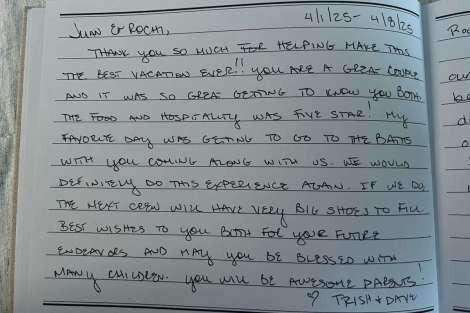 4/1/25 - 4/8/25
JUAN & ROCHI,
THANK YOU SO MUCH FOR HELPING MAKE THIS
THE BEST VACATION EVER!! YOU ARE A GREAT COUPLE
AND IT WAS SO GREAT GETTING TO KNOW YOU BOTH.
THE FOOD AND HOSPITALITY WAS FIVE STAR! MY
FAVORITE DAY WAS GETTING TO GO TO THE BATHS
WITH YOU COMING ALONG WITH US. WE WOULD
DEFINITELY DO THIS EXPERIENCE AGAIN. IF WE DO,
THE NEXT CREW WILL HAVE VERY BIG SHOES TO FILL
BEST WISHES TO YOU BOTH FOR YOUR FUTURE
ENDEAVORS AND MAY YOU BE BLESSED WITH
MANY CHILDREN. YOU WILL BE AWESOME PARENTS!
♡ TRISH & DAVE